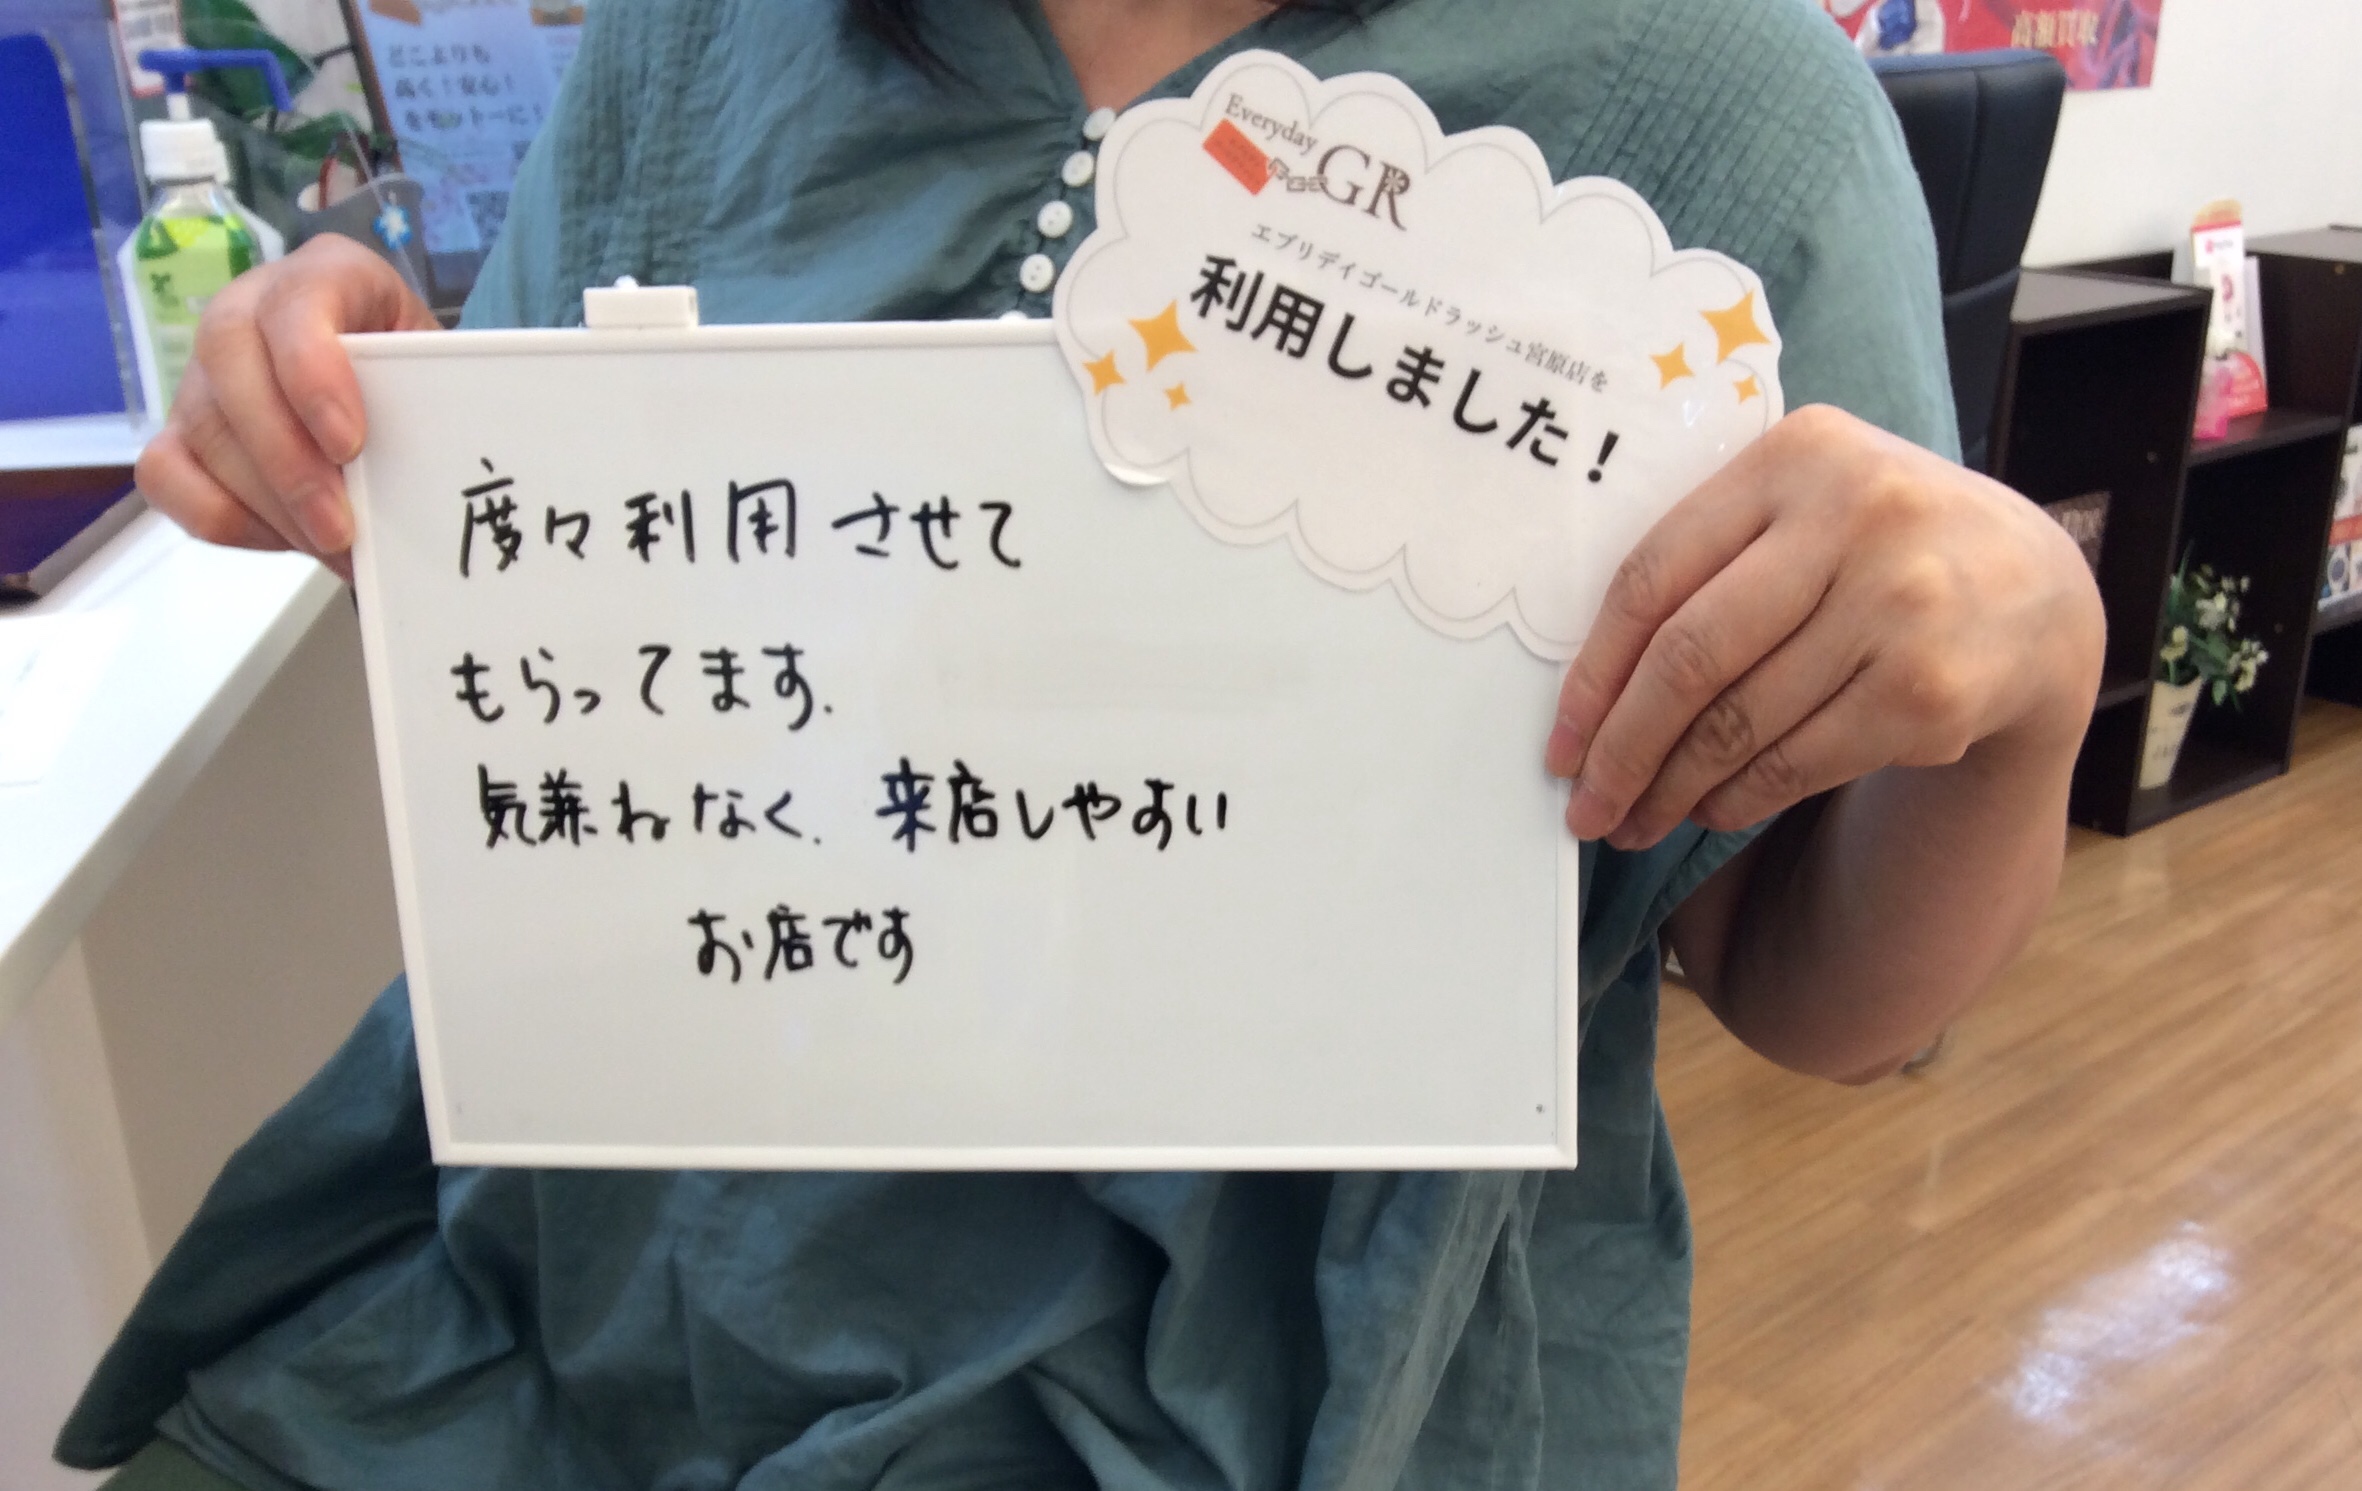 どこよりも
高く！安心！
をモットーに！
高額買取
Everyday
GR
エブリデイゴールドラッシュ宮原店を
利用しました！
度々利用させて
もらってます.
気兼ねなく. 来店しやすい
お店です